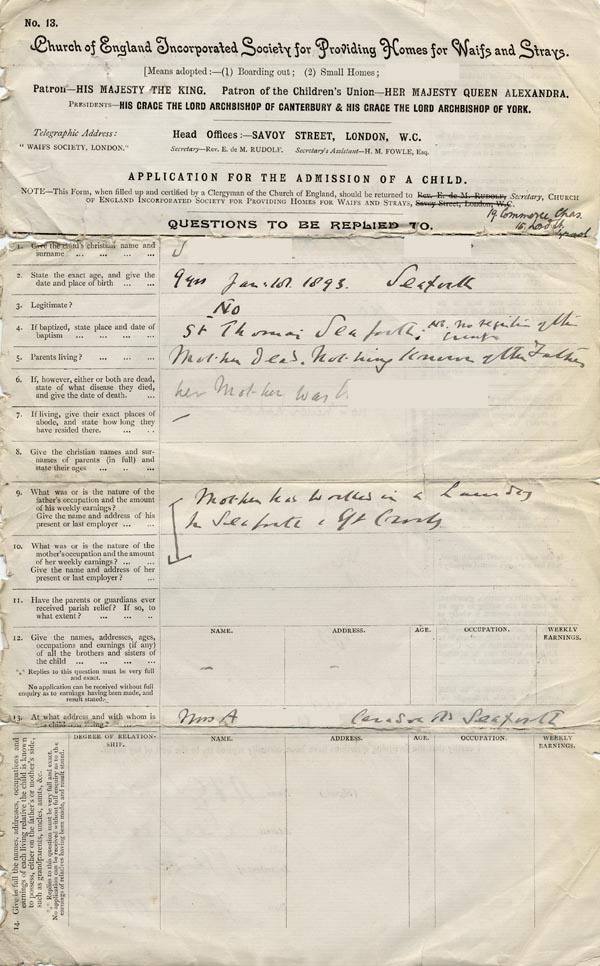 No. 13.
Church of England Incorporated Society for Providing Homes for Waifs and Strays.
[Means adopted:—(1) Boarding out; (2) Small Homes;
Patron—HIS MAJESTY THE KING. Patron of the Children's Union—HER MAJESTY QUEEN ALEXANDRA.
Presidents—HIS GRACE THE LORD ARCHBISHOP OF CANTERBURY & HIS GRACE THE LORD ARCHBISHOP OF YORK.
Telegraphic Address: Head Offices:—SAVOY STREET, LONDON, W.C.
"WAIFS SOCIETY, LONDON." Secretary—Rev. E. de M. RUDOLF. Secretary's Assistant—H. M. FOWLE, Esq.
APPLICATION FOR THE ADMISSION OF A CHILD.
NOTE—This Form, when filled up and certified by a Clergyman of the Church of England, should be returned to Rev. E. de M. Rudolf, Secretary, Church
of England Incorporated Society for Providing Homes for Waifs and Strays, Savoy Street, London, W.C.
19 Commerce Chas.
15 Lord St
QUESTIONS TO BE REPLIED TO.
1. Give the child's christian name and
surname ... ... ... ... J
2. State the exact age, and give the
date and place of birth ... ... 9 yrs Jan: 10th. 1893. Seaforth
3. Legitimate? No
4. If baptism, state place and date of
baptism ... ... ... ... St Thomas Seaforth. N.B. no register of the
5. Parents living? ... ... ... Mother dead. Nothing known of the Father
6. If, however, either or both are dead,
state of what disease they died,
and give the date of death. ... her Mother was b
7. If living, give their exact places of
abode, and state how long they
have resided there. ... ... —
8. Give the christian names and sur-
names of parents (in full) and
state their ages ... ... ...
9. What was or is the nature of the
father's occupation and the amount
of his weekly earnings? ... ...
Give the name and address of his
present or last employer ... ...
Mother has worked in a Laundry
in Seaforth & Gt Crosby
10. What was or is the nature of the
mother's occupation and the amount
of her weekly earnings? ... ...
Give the name and address of her
present or last employer? ...
11. Have the parents or guardians ever
received parish relief? If so, to
what extent? ... ... ...
NAME. ADDRESS. AGE. OCCUPATION. WEEKLY EARNINGS.
12. Give the names, addresses, ages,
occupations and earnings (if any)
of all the brothers and sisters of
the child ... ... ... ... — —
*** Replies to this question must be very full
and exact.
No application can be received without full
enquiry as to earnings having been made, and
result stated.
13. At what address and with whom is Mrs A Seaforth
DEGREE OF RELATION-
SHIP. NAME. ADDRESS. AGE. OCCUPATION. WEEKLY EARNINGS.
14. Give in full the names, addresses, occupations and
earnings of each living relative the child is known
to possess, either on the father's or mother's side,
such as grandparents, uncles, aunts, &c.
*** Replies to this question must be very full and exact.
No application can be received without full enquiry as to the
earnings of relatives having been made, and result stated.